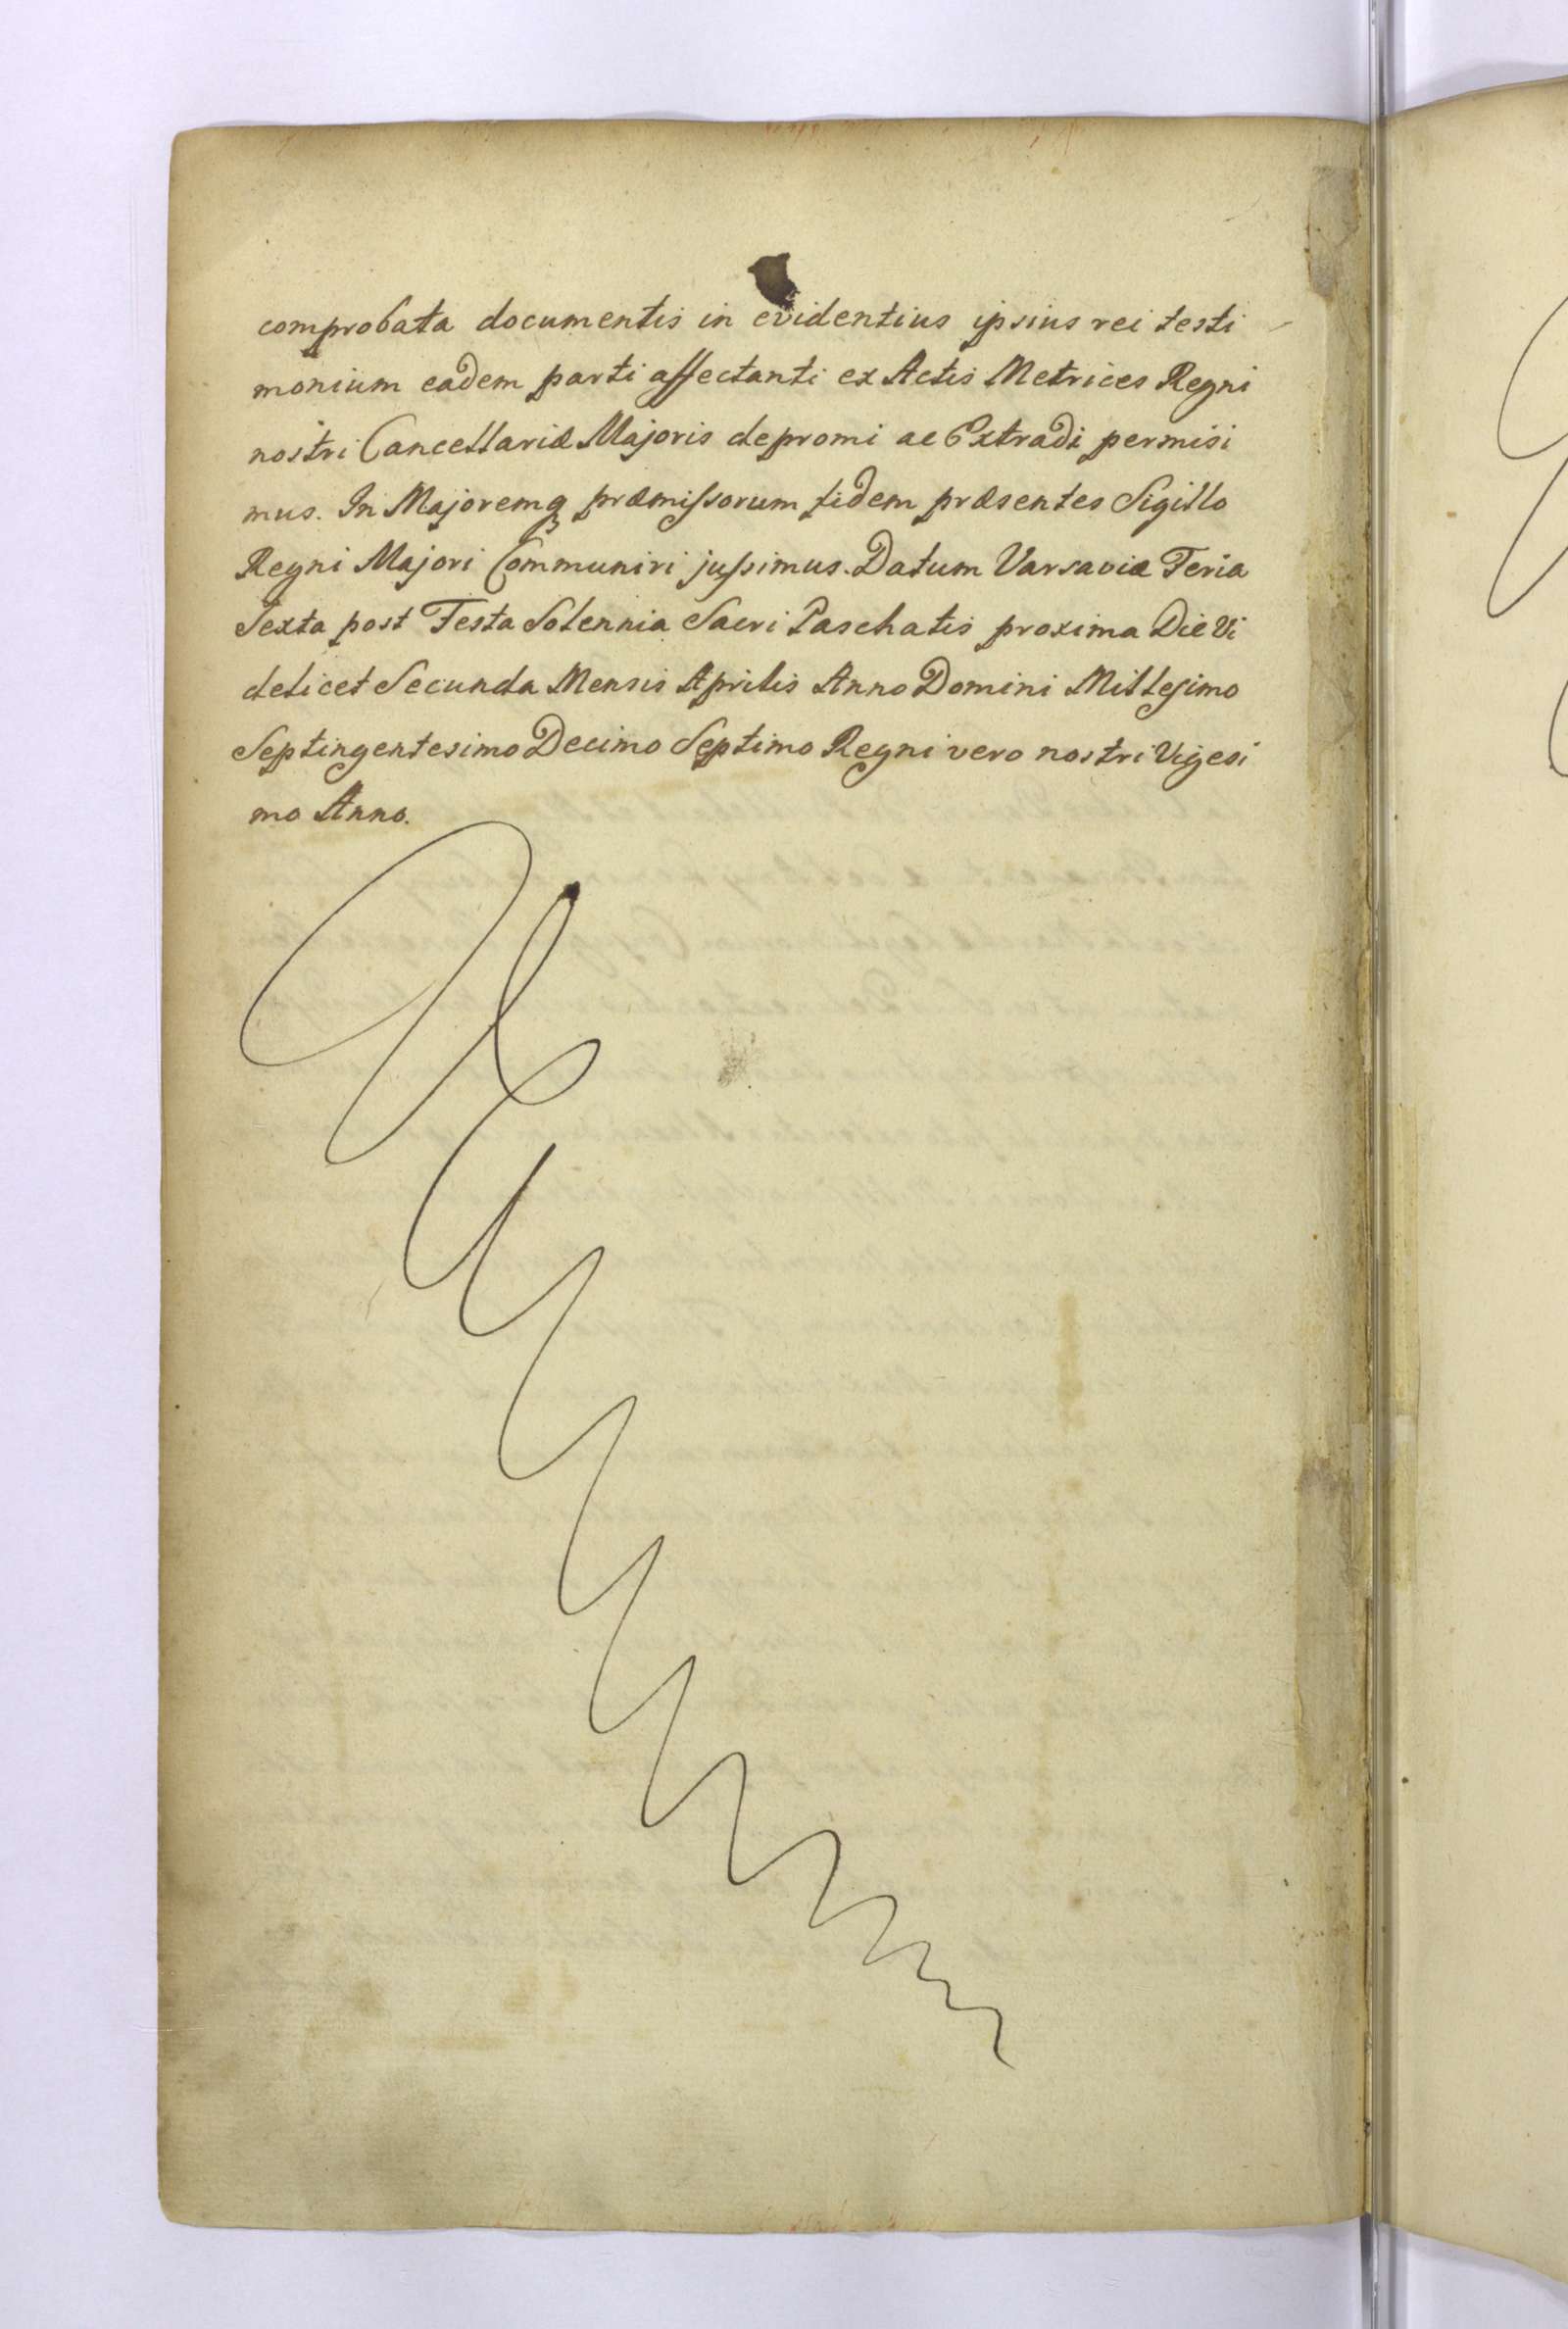 comprobata documentis in evidentius ipsius rei testi
monium eadem parti affectanti ex Actis Metrices Regni
nostri Cancellariæ Majoris depromi ac Extradi permisi
mus. In Majoremq præmissorum fidem præsentes Sigillo
Regni Majori Communiri jussimus. Datum Varsaviæ Feria
Sexta post Festa Solennia Sacri Paschatis proxima Die Vi
delicet Secunda Mensis Aprilis Anno Domini Millesimo
Septingentesimo Decimo Septimo Regni vero nostri Vigesi
mo Anno.